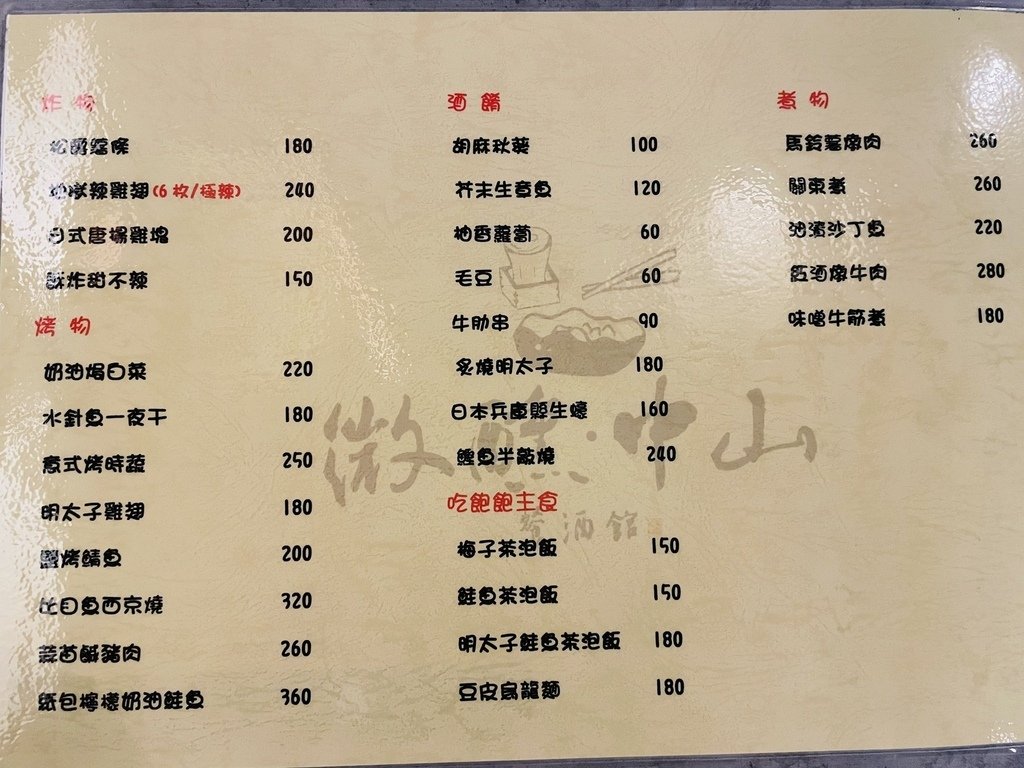 炸物
松露薯條 180
地獄辣雞翅(6枚/極辣) 240
日式唐揚雞塊 200
酥炸甜不辣 150
烤物
奶油焗白菜 220
水針魚一夜干 180
意式烤時蔬 250
明太子雞翅 180
鹽烤鯖魚 200
比目魚西京燒 320
蒜苗鹹豬肉 260
紙包檸檬奶油鮭魚 360
酒餚
胡麻秋葵 100
芥末生章魚 120
柚香蘿蔔 60
毛豆 60
牛肋串 90
炙燒明太子 180
日本兵庫縣生蠔 160
鰹魚半敲燒 240
吃飽飽主食
梅子茶泡飯 150
鮭魚茶泡飯 150
明太子鮭魚茶泡飯 180
豆皮烏龍麵 180
煮物
馬鈴薯燉肉 260
關東煮 260
油漬沙丁魚 220
紅酒燉牛肉 280
味噌牛筋煮 180
微醺·中山
餐酒館